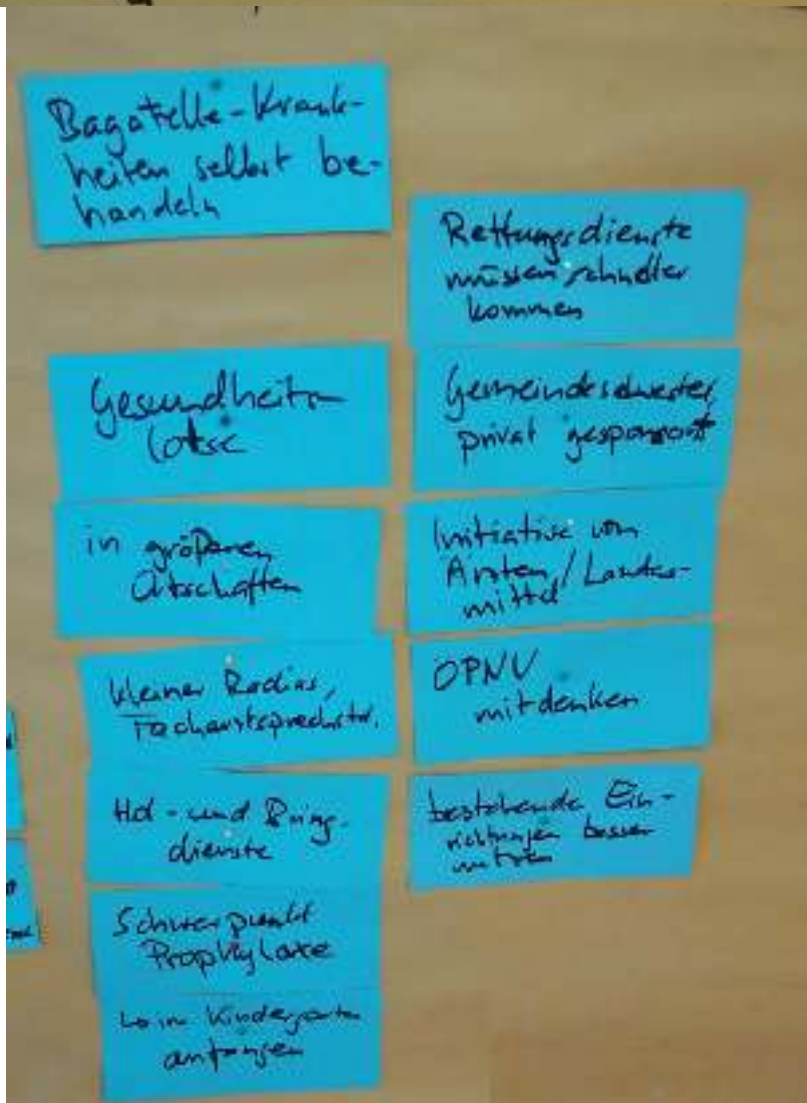 Bagatelle-Krank-
heiten selbst be-
handeln
Gesundheits-
lotse
in größeren
Ortschaften
kleiner Radius,
Facharztsprechstd.
Hol- und Bring-
dienste
Schwerpunkt
Prophylaxe
im Kindergarten
anfangen
Rettungsdienste
müssen schneller
kommen
Gemeindeschwester,
privat gesponsort
Initiative von
Ärzten / Landes-
mittel
ÖPNV
mitdenken
bestehende Ein-
richtungen besser
nutzen